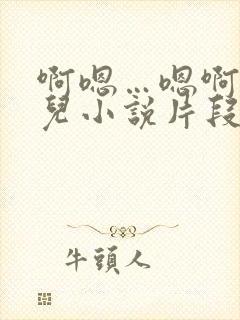 啊嗯…嗯啊
兒小說片段
牛頭人